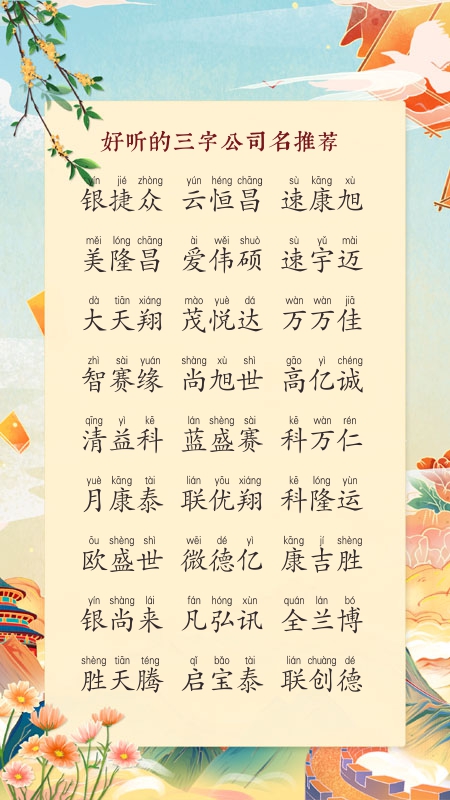 好听的三字公司名推荐
yín jié zhòng yún héng chāng sù kāng xù
银捷众 云恒昌 速康旭
měi lóng chāng ài wěi shuò sù yǔ mài
美隆昌 爱伟硕 速宇迈
dà tiān xiáng mào yuè dá wàn wàn jiā
大天翔 茂悦达 万万佳
zhì sài yuán shàng xù shì gāo yì chéng
智赛缘 尚旭世 高亿诚
qīng yì kē lán shèng sài kē wàn rén
清益科 蓝盛赛 科万仁
yuè kāng tài lián yōu xiáng kē lóng yùn
月康泰 联优翔 科隆运
ōu shèng shì wēi dé yì kāng jí shèng
欧盛世 微德亿 康吉胜
yín shàng lái fán hóng xùn quán lán bó
银尚来 凡弘讯 全兰博
shèng tiān téng qǐ bǎo tài lián chuàng dé
胜天腾 启宝泰 联创德